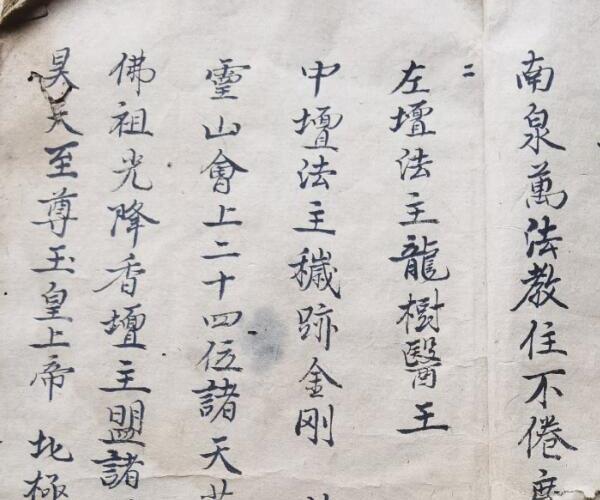 南泉萬法教住不倦
〻
左壇法主龍樹醫王
中壇法主穢跡金剛
靈山會上二十四位諸天
佛祖光降香壇主盟諸
昊天至尊玉皇上帝 北極